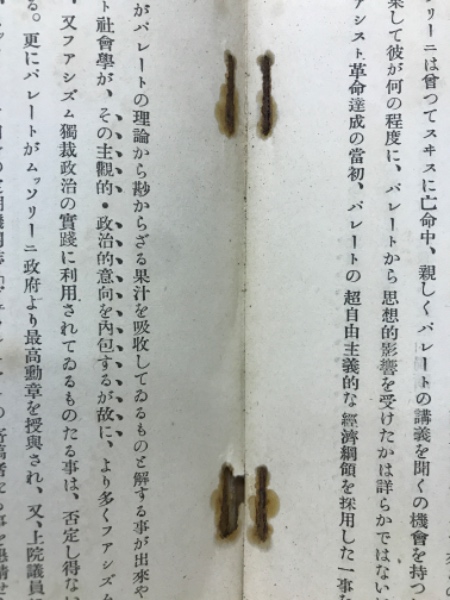 ソリーニは曾つてスヰスに亡命中、親しくパレートの講義を聞くの機會を持つ
果して彼が何の程度に、パレートから思想的影響を受けたかは詳らかではない
アシスト革命達成の當初、パレートの超自由主義的な經濟綱領を採用した一事を
がパレートの理論から尠からざる果汁を吸收してゐるものと解する事が出來や
ト社會學が、その主觀的・政治的意向を內包するが故に、より多くファシズム
、又ファシズム獨裁政治の實踐に利用されてゐるものたる事は、否定し得な
る。更にパレートがムッソリーニ政府より最高勳章を授與され、又、上院議員